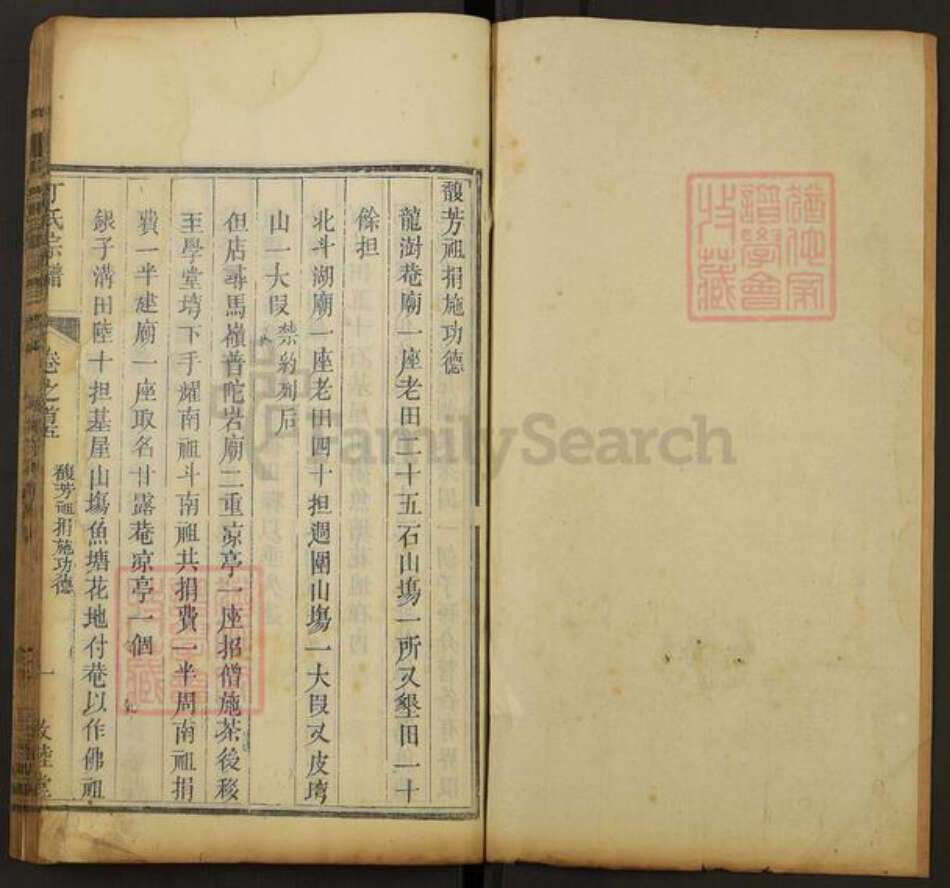 馥芳祖捐施功德
龍澍菴廟一座老田三十五石山塲一所又墾田一十
餘担
北斗湖廟一座老田四十担週圍山塲一大叚又皮塆
山一大叚禁約列后
但店尋馬嶺普陀岩廟二重凉亭一座招僧施茶後移
至學堂塆下手耀南祖斗南祖共捐費一半周南祖捐
費一半建廟一座取名甘露菴凉亭一個
錄子溝田陸十担基屋山塲魚塘花地付菴以作佛祖
丁氏宗譜
卷之首五
馥芳祖捐施功德
一
敦睦堂
FamilySearch
譜學會
收藏